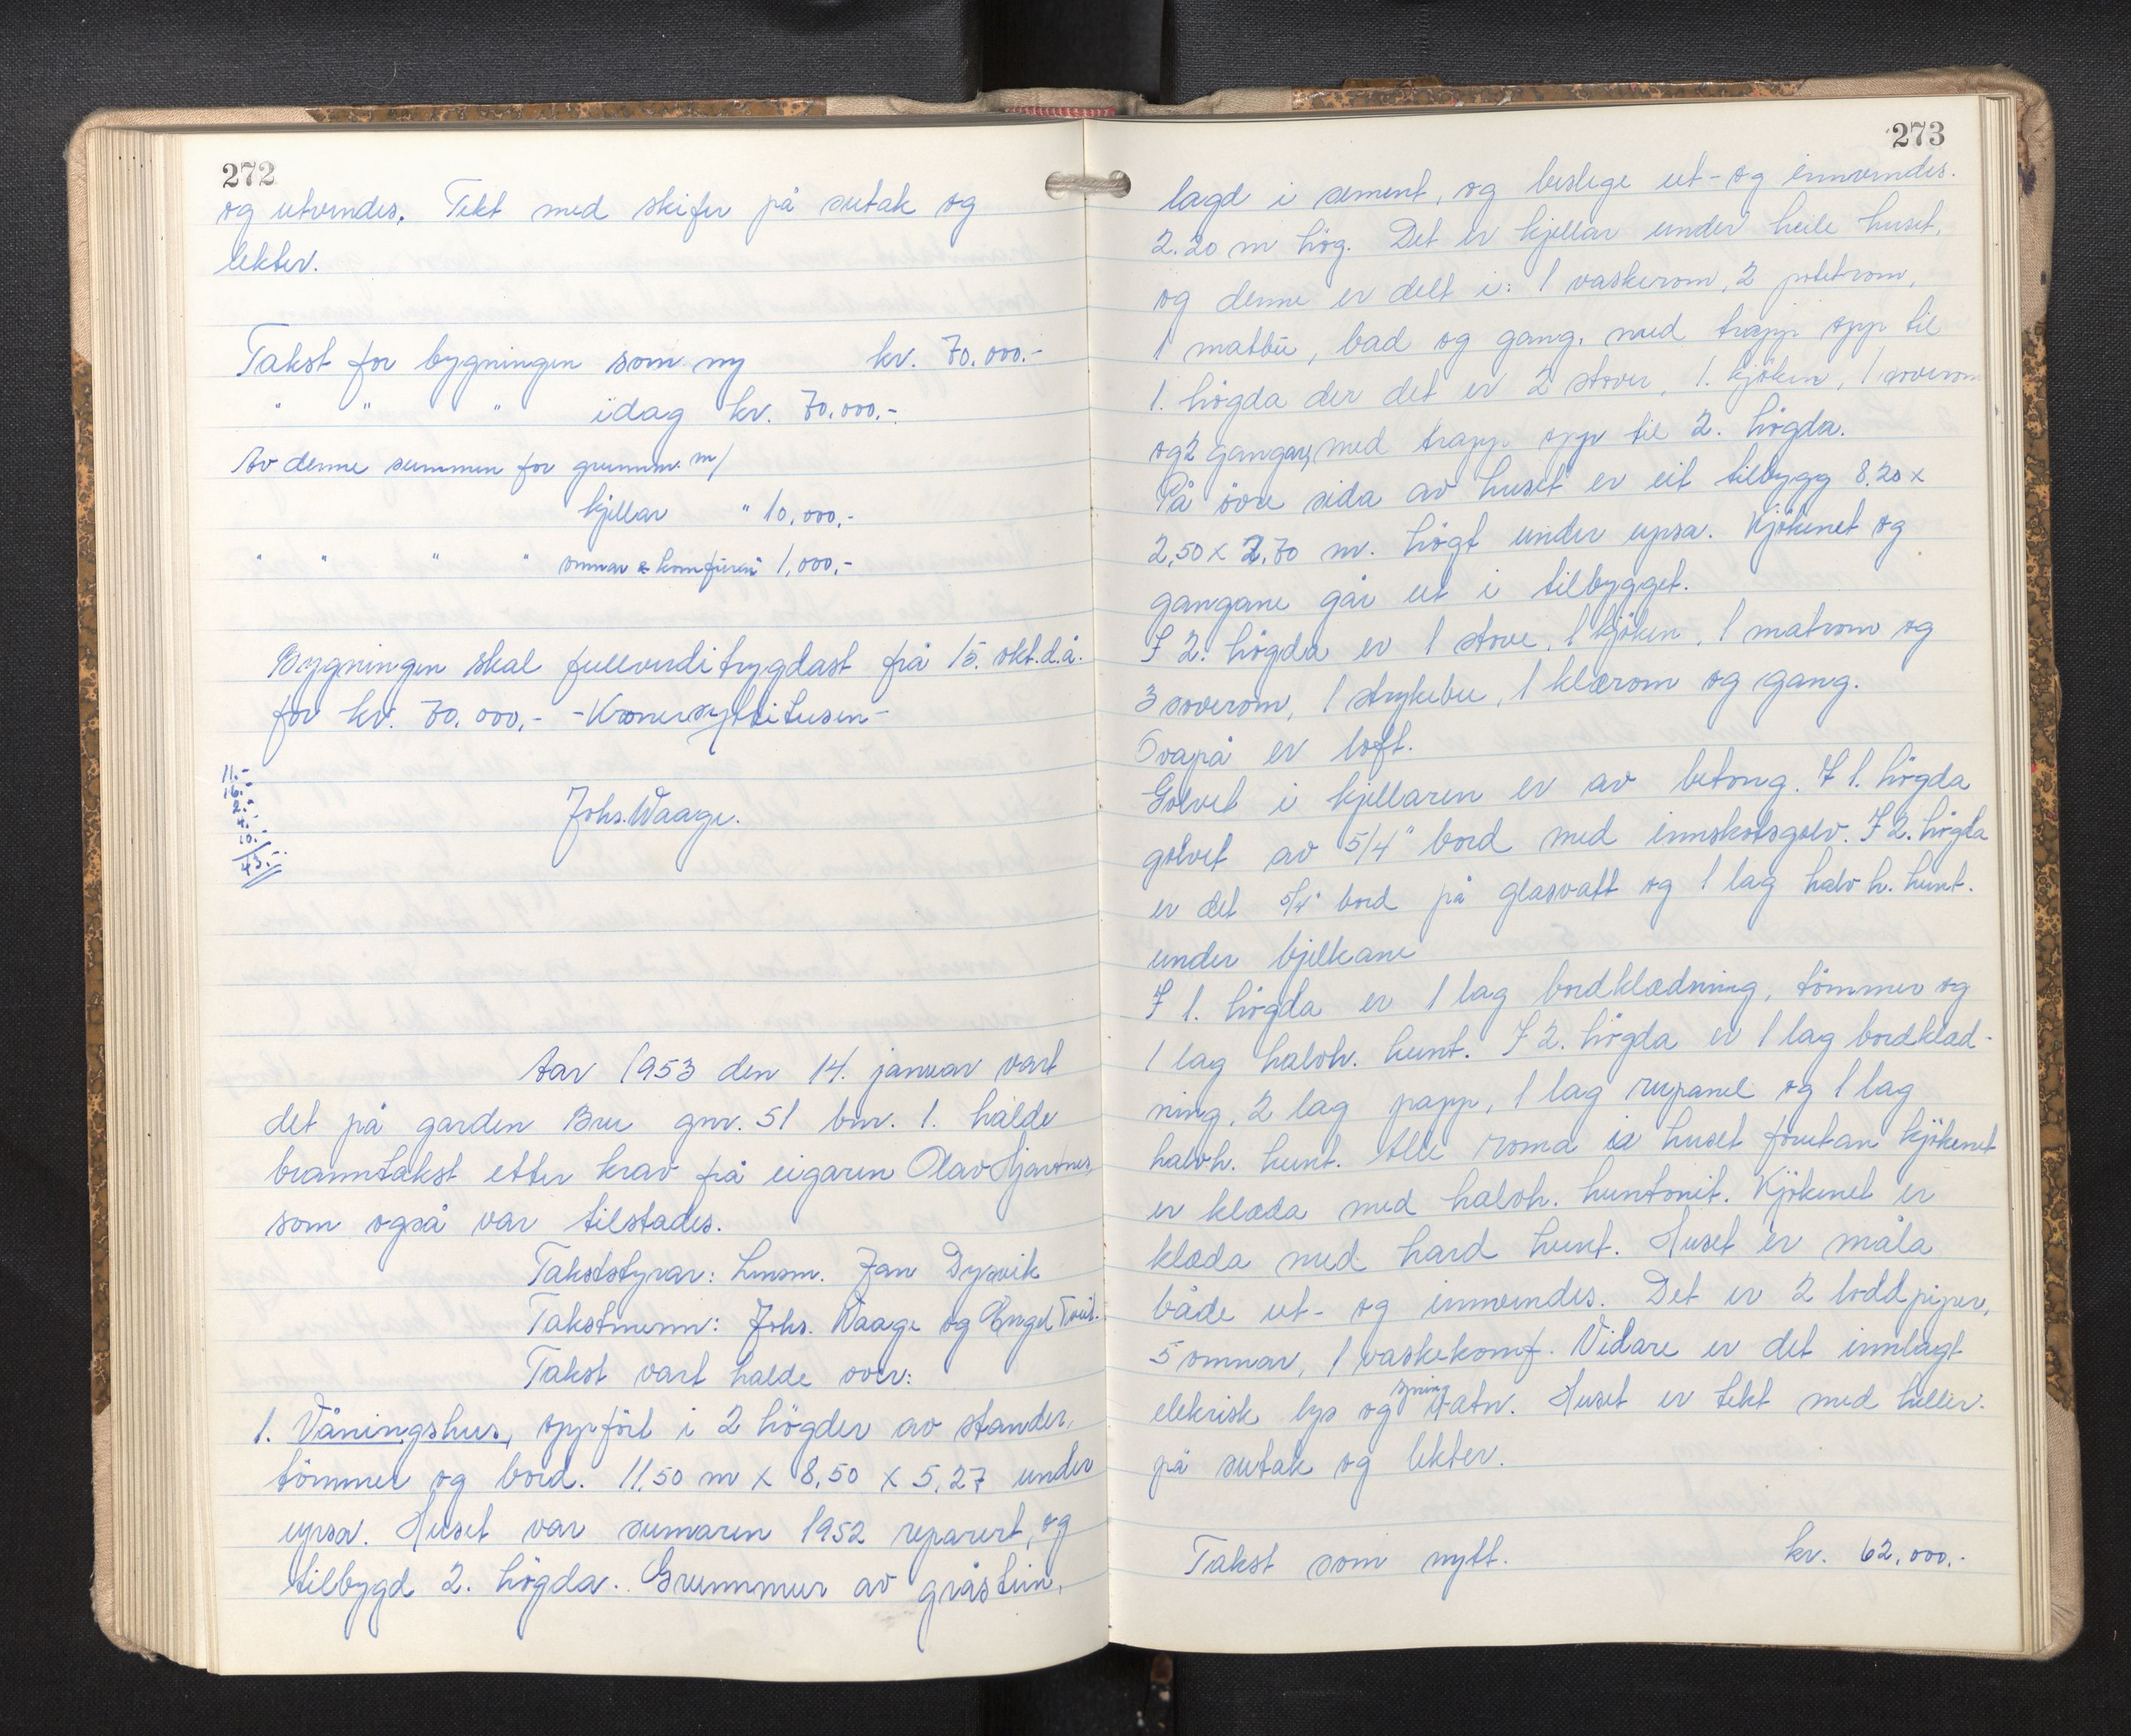 272
og utvendes. Tekt med skifer på sutak og
lekter.
Takst for bygningen som ny kr. 70.000.-
" " " idag kr. 70.000,-
Av denne summen for grunnm. m/
kjellar " 10.000,-
" " " " omnar & komfürar " 1,000,-
Bygningen skal fullverditrygdast frå 15. okt.d.å.
for kr. 70.000,- -Kronersyttitusen-
11.-
16.-
2.-
4.-
10.-
43.-
Johs. Waage.
Aar 1953 den 14. januar vart
det på garden Bru gnr. 51 bnr. 1. halde
branntakst etter krav frå eigaren Olav
som også var tilstades.
Takststyrar: Lensm. Jan Dysvik
Takstmenn: Johs. Waage og Engel Tveit.
Takst vart halde over:
1. Våningshus, oppfört i 2 högder av stander,
tömmer og bord. 11,50 m x 8,50 x 5,27 under
upsa. Huset var sumaren 1952 reparert, og
tilbygd 2. högda. Grunnmur av gråstein,
273
lagd i sement, og beslege ut- og innvendes.
2.20 m hög. Det er kjellar under heile huset,
og denne er delt i: 1 vaskerom, 2 potetrom,
1 matbu, bad og gang, med trapp opp til
1. högda der det er 2 stover, 1. kjöken, 1 soverom
og 2 gangar, med trapp opp til 2. högda.
På övre sida av huset er eit tilbygg 8.20 x
2,50 x 2.70 m. högt under upsa. Kjökenet og
gangane går ut i tilbygget.
I 2. högda er 1 stove, 1 kjöken, 1 matrom og
3 soverom, 1 strykebu, 1 klærom og gang.
Ovapå er loft.
Golvet i kjellaren er av betong. I 1. högda
golvet av 5/4" bord med innskotsgolv. I 2. högda
er det 5/4" bord på glasvatt og 1 lag halv h. hunt.
under bjelkane
I 1. högda er 1 lag bordklædning, tömmer og
1 lag halvh. hunt. I 2. högda er 1 lag bordklæd-
ning, 2 lag papp, 1 lag rupanel og 1 lag
halvh. hunt. Alle roma i huset forutan kjökenet
er klæda med halvh. huntonit. Kjökenet er
klæda med hard hunt. Huset er måla
både ut- og innvendes. Det er 2 loddpiper,
5 omnar, 1 vaskekomf. Vidare er det innlagt
elekrisk lys og spring vatn. Huset er tekt med heller
på sutak og lekter.
Takst som nytt. kr. 62.000,-